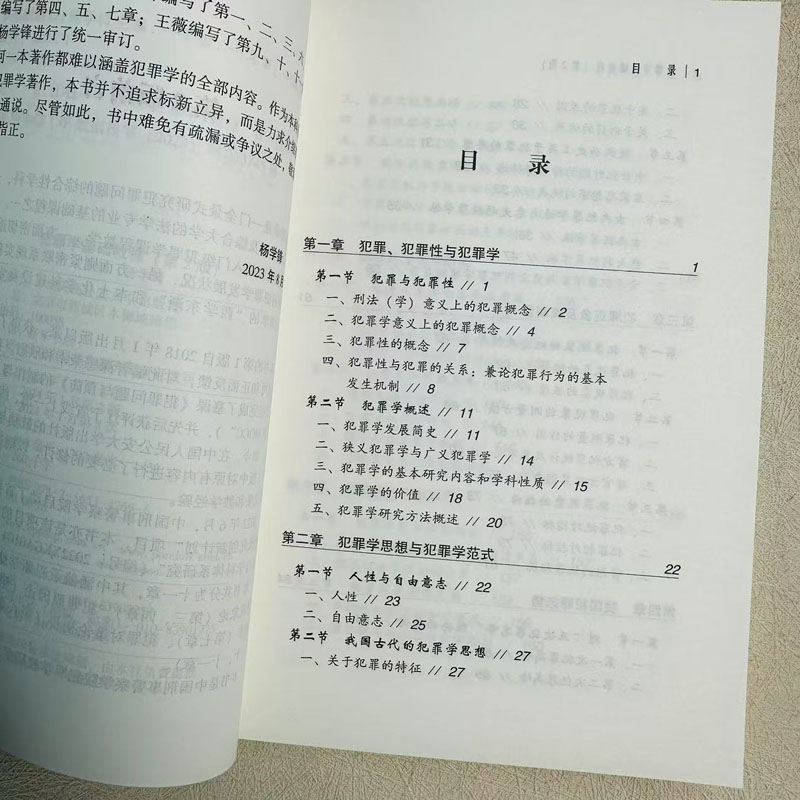 编写了第一、二、三、六
编写了第四、五、七章；王薇编写了第九、十、十一
杨学锋进行了统一审订。
何一本著作都难以涵盖犯罪学的全部内容。作为本科
犯罪学著作，本书并不追求标新立异，而是力求介绍
通说。尽管如此，书中难免有疏漏或争议之处，敬
指正。
杨学锋
2023年8月
目 录 | 1
目 录
第一章 犯罪、犯罪性与犯罪学 1
第一节 犯罪与犯罪性 // 1
一、刑法（学）意义上的犯罪概念 // 2
二、犯罪学意义上的犯罪概念 // 4
三、犯罪性的概念 // 7
四、犯罪性与犯罪的关系：兼论犯罪行为的基本
发生机制 // 8
第二节 犯罪学概述 // 11
一、犯罪学发展简史 // 11
二、狭义犯罪学与广义犯罪学 // 14
三、犯罪学的基本研究内容和学科性质 // 15
四、犯罪学的价值 // 18
五、犯罪学研究方法概述 // 20
第二章 犯罪学思想与犯罪学范式 22
第一节 人性与自由意志 // 22
一、人性 // 23
二、自由意志 // 25
第二节 我国古代的犯罪学思想 // 27
一、关于犯罪的特征 // 27